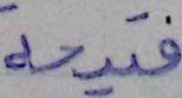 فتيحة